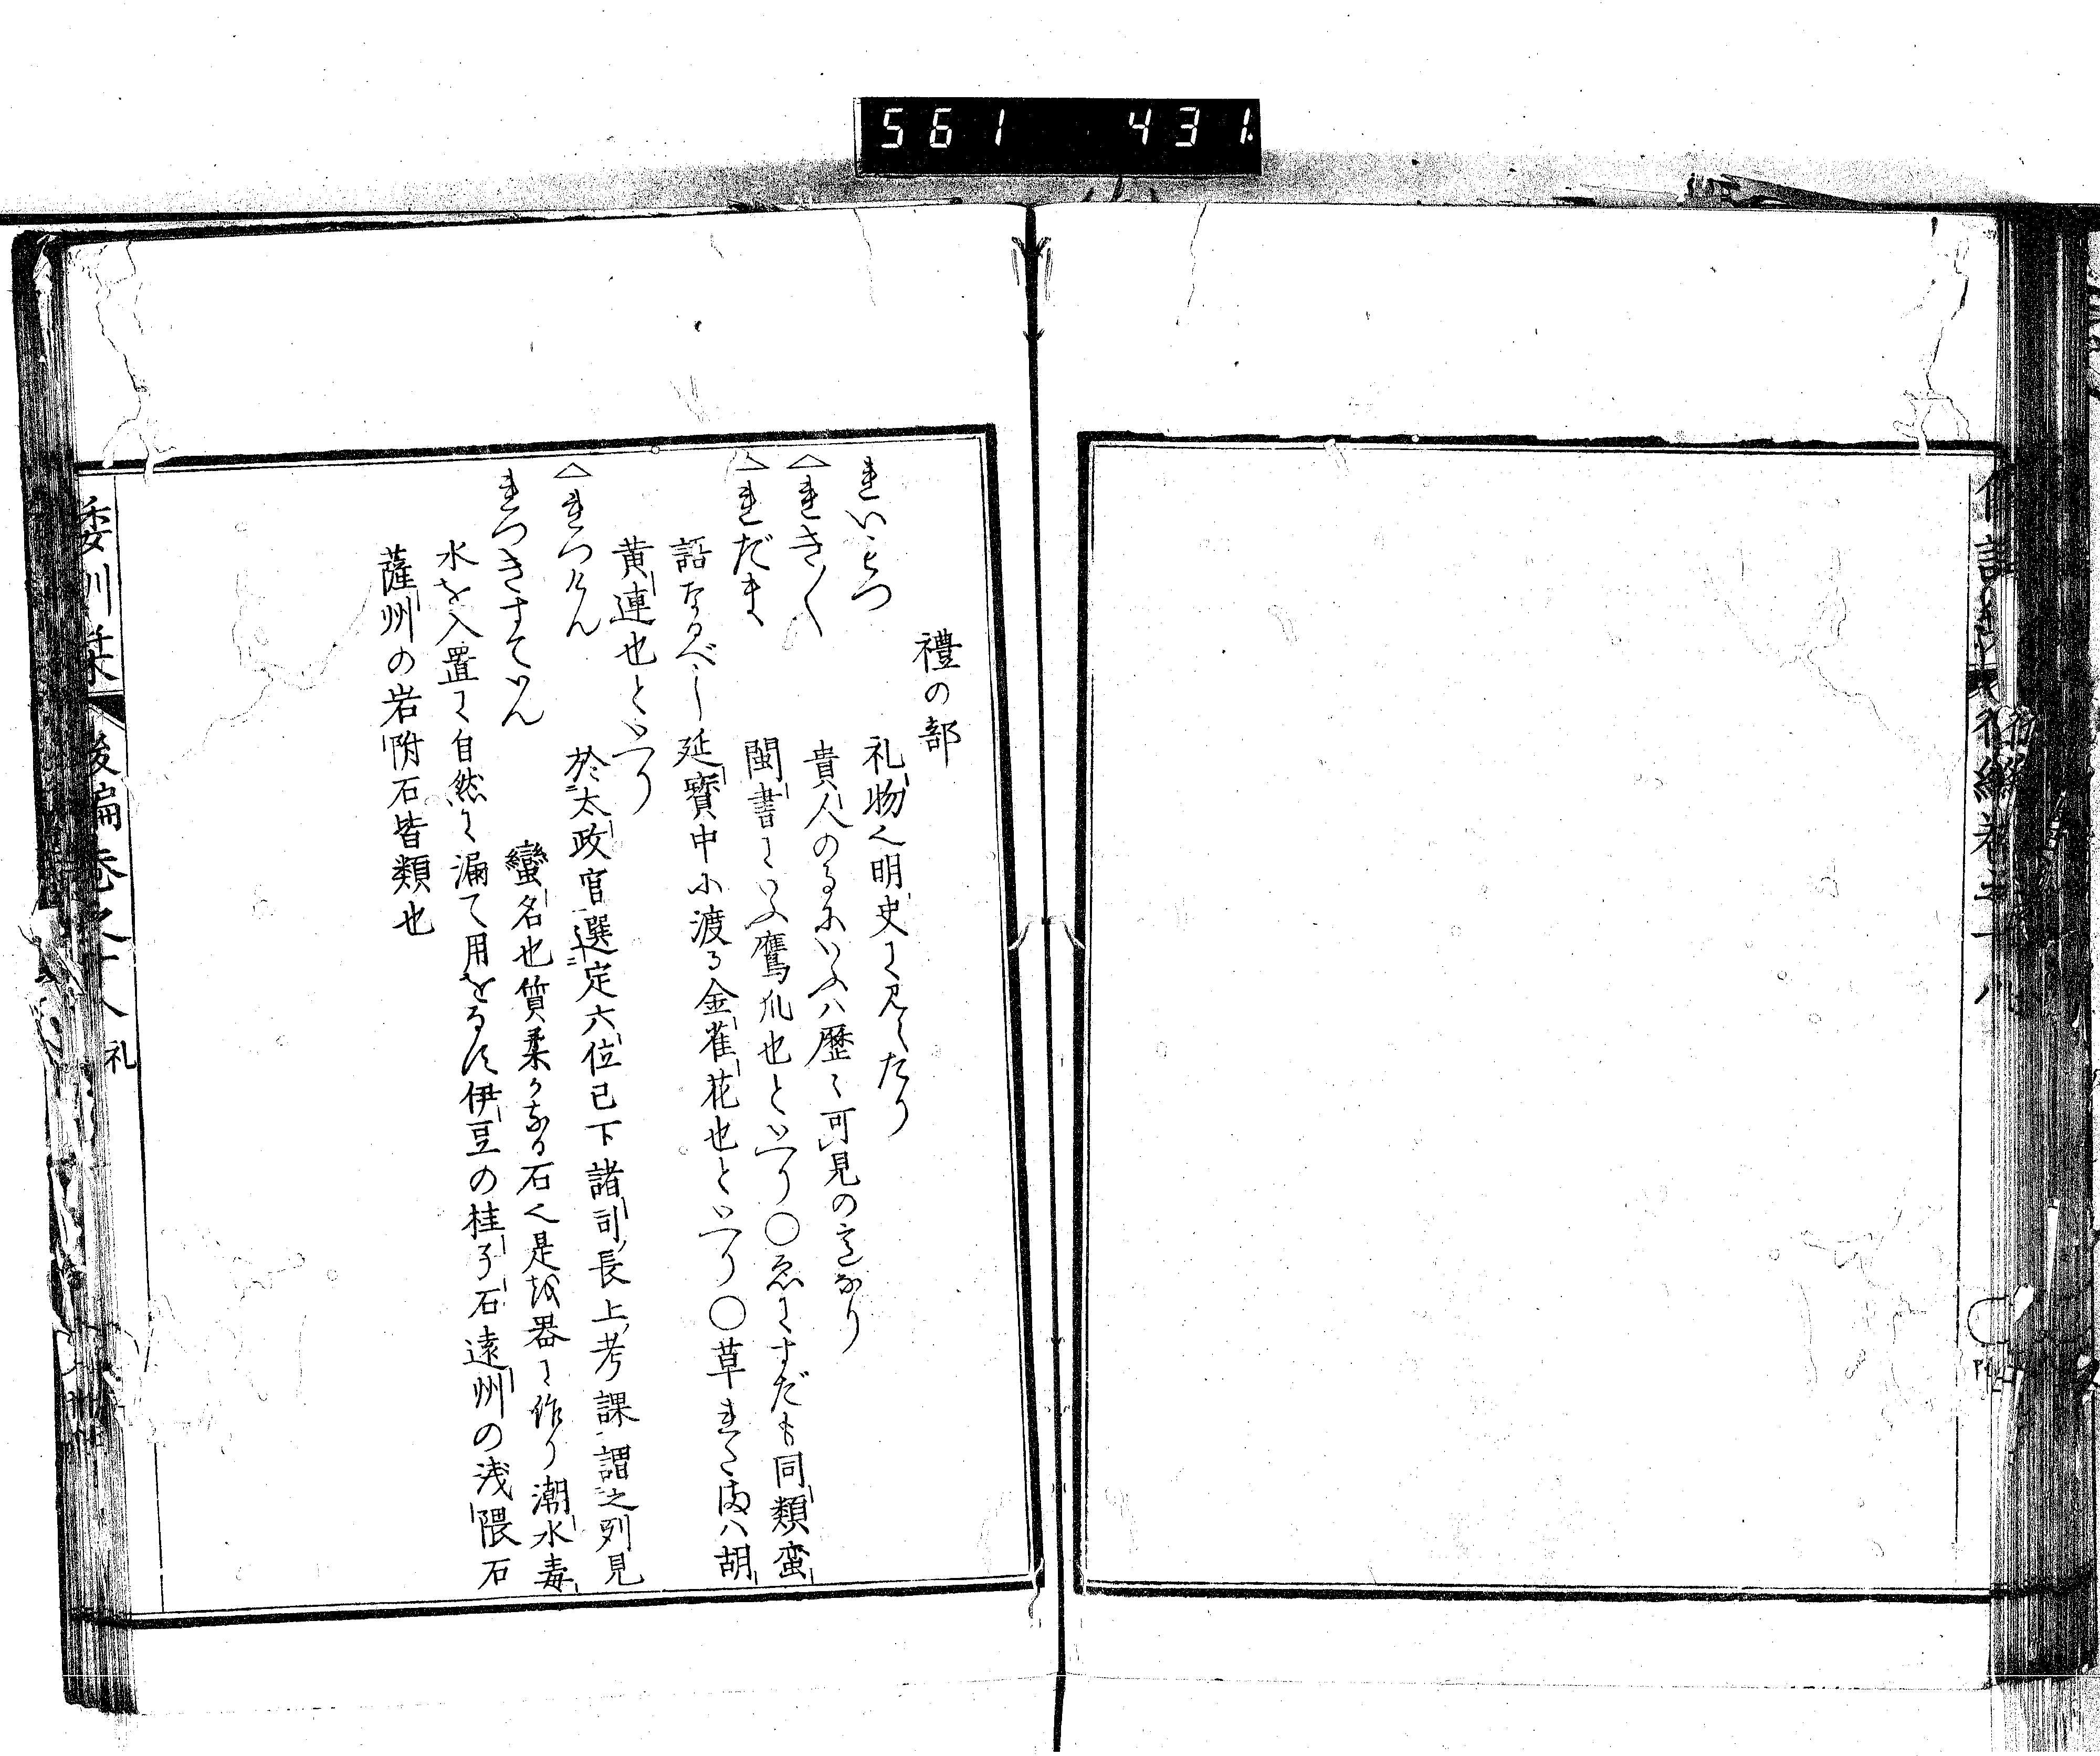 561 431
禮の部
れいもつ 礼物く明史に見えたり
△れき〱 貴人のるゐにいふハ歴々可見の意なり
△れだま 閩書にいふ鷹爪也といへり○ゑにすだも同類蛮
話なるべし延寳中小渡る金雀花也といへり○草れだまハ胡
黄連也といへり
△れつけん 於太政官選定六位已下諸司長上考課謂之列見
れつきすていん 蠻名也質柔かなる石く是を器に作り潮水毒
水を入置て自然に漏て用をなす伊豆の桂子石遠州の浅隈石
薩州の岩附石皆類也
倭訓栞 後編巻之十八 礼